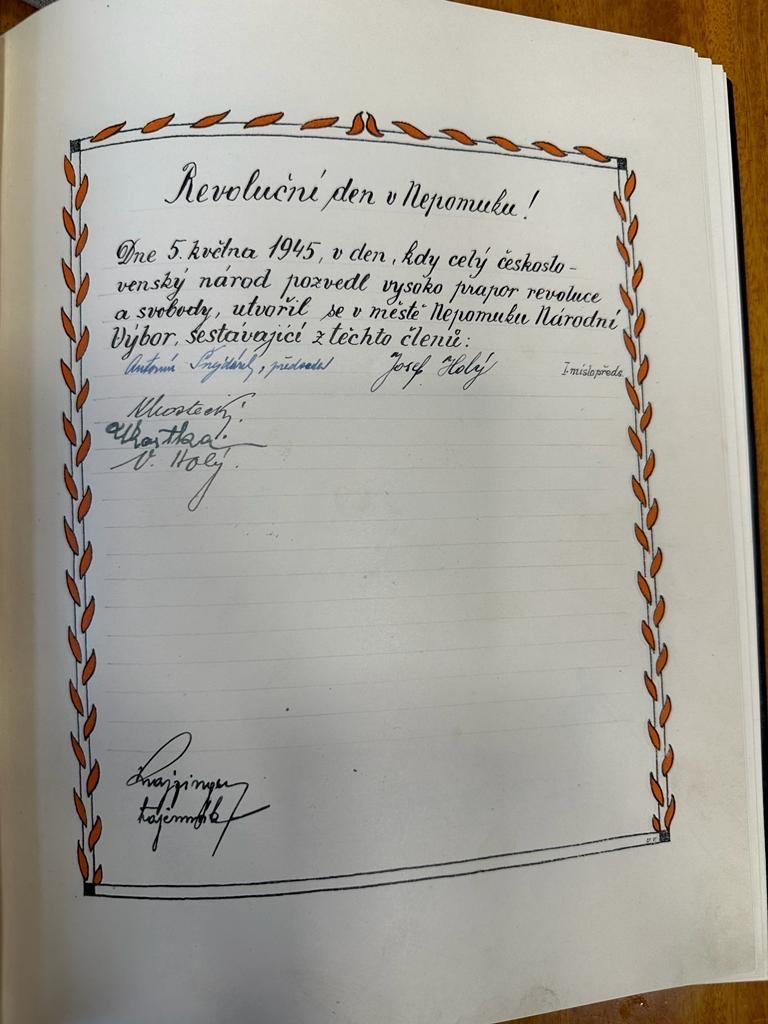 Revoluční den v Nepomuku!
Dne 5. května 1945, v den, kdy celý českoslo-
venský národ pozvedl vysoko prapor revoluce
a svobody, utvořil se v městě Nepomuku Národní
Výbor, sestávající z těchto členů:
Antonín předseda Josef Holý I. místopředs.
V. Holý.
tajemník